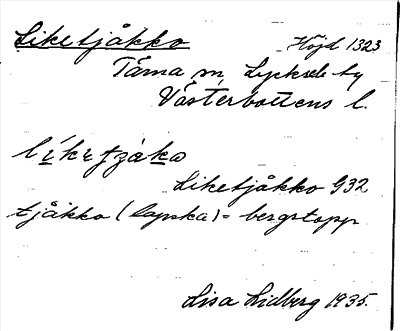 Liketjåkko Höjd 1323
Tärna sn, Lycksele ty
Västerbottens l.
Liketjåkko G32
tjåkko (lapska) = bergstopp
Lisa Lidberg 1935.